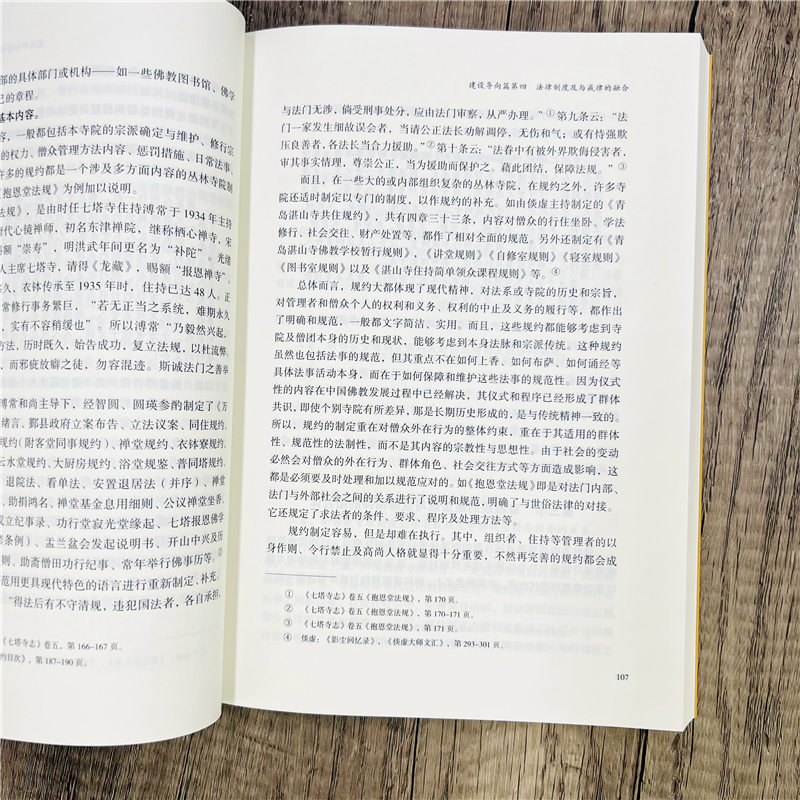 部的具体部门或机构——如一些佛教图书馆、佛学
己的章程。
基本内容。
容，一般都包括本寺院的宗派确定与维护、修行宗
的权力、僧众管理方法内容、惩罚措施、日常法事、
许多的规约都是一个涉及多方面内容的丛林寺院制
《抱恩堂法规》为例加以说明。
法规》，是由时任七塔寺住持溥常于1934年主持
唐代心镜禅师，初名东津禅院，继称栖心禅寺，宋
赐额“崇寿”，明洪武年间更名为“补陀”。光绪
人主席七塔寺，请得《龙藏》，赐额“报恩禅寺”。
久，衣钵传承至1935年时，住持已达48人。正
常修行事务繁巨，“若无正当之系统，难期永久
，实有不容稍缓也”。所以溥常“乃毅然兴起，
方法，历时既久，始告成功，复立法规，以杜流弊。
，而邪疵放癖之徒，勿容混迹。斯诚法门之善举
溥常和尚主导下，经智圆、圆瑛参酌制定了《万
绪言、鄞县政府立案布告、立法议案、同住规约、
规约(附客堂同事规约)、禅堂规约、衣钵寮规约、
云水堂规约、大厨房规约、浴堂规鉴、普同塔规约、
、退院法、看单法、安置退居法（并序）、禅堂
、助捐鸿名、禅堂基金息用细则、公议禅堂坐香、
成立纪事录、功行堂寂光堂缘起、七塔报恩佛学
禁条例）、盂兰盆会发起说明书、开山中兴及历
则、助斋僧田功行纪事、常年举行佛事历等。②
范用更具现代特色的语言进行重新制定、补充。
“得法后有不守清规，违犯国法者，各自承担，
《七塔寺志》卷五，第166-167页。
约目次》，第187-190页。
建设导向篇第四 法律制度及与戒律的融合
与法门无涉，倘受刑事处分，应由法门审察，从严办理。”①第九条云：“法
门一家发生细故误会者，当请公正法长劝解调停，无伤和气；或有恃强欺
压良善者，各法长当合力援助。”②第十条云：“法眷中有被外界欺侮侵害者，
审其事实情理，尊崇公正，当为援助而保护之。藉此团结，保障法规。”③
而且，在一些大的或内部组织复杂的丛林寺院，在规约之外，许多寺
院还适时制定以专门的制度，以作规约的补充。如由倓虚主持制定的《青
岛湛山寺共住规约》，共有四章三十三条，内容对僧众的行住坐卧、学法
修行、社会交往、财产处置等，都作了相对全面的规范。另外还制定有《青
岛湛山寺佛教学校暂行规则》，《讲堂规则》《自修室规则》《寝室规则》
《图书室规则》以及《湛山寺住持简单领众课程规则》等。④
总体而言，规约大都体现了现代精神，对法系或寺院的历史和宗旨，
对管理者和僧众个人的权利和义务、权利的中止及义务的履行等，都作出
了明确和规范，一般都文字简洁、实用。而且，这些规约都能够考虑到寺
院及僧团本身的历史和现状，能够考虑到本身法脉和宗派传统。这种规约
虽然也包括法事的规范，但其重点不在如何上香、如何布萨、如何诵经等
具体法事活动本身，而在于如何保障和维护这些法事的规范性。因为仪式
性的内容在中国佛教发展过程中已经解决，其仪式和程序已经形成了群体
共识，即使个别寺院有所差异，那是长期历史形成的，是与传统精神一致的。
所以，规约的制定重在对僧众外在行为的整体约束，重在于其适用的群体
性、规范性的法制性，而不是其内容的宗教性与思想性。由于社会的变动
必然会对僧众的外在行为、群体角色、社会交往方式等方面造成影响，这
都是必须要及时处理和加以规范应对的。如《抱恩堂法规》即是对法门内部、
法门与外部社会之间的关系进行了说明和规范，明确了与世俗法律的对接。
它还规定了求法者的条件、要求、程序及处理方法等。
规约制定容易，但是却难在执行。其中，组织者、住持等管理者的以
身作则、令行禁止及高尚人格就显得十分重要，不然再完善的规约都会成
① 《七塔寺志》卷五《抱恩堂法规》，第170页。
② 《七塔寺志》卷五《抱恩堂法规》，第170-171页。
③ 《七塔寺志》卷五《抱恩堂法规》，第171页。
④ 倓虚：《影尘回忆录》，《倓虚大师文汇》，第293-301页。
107